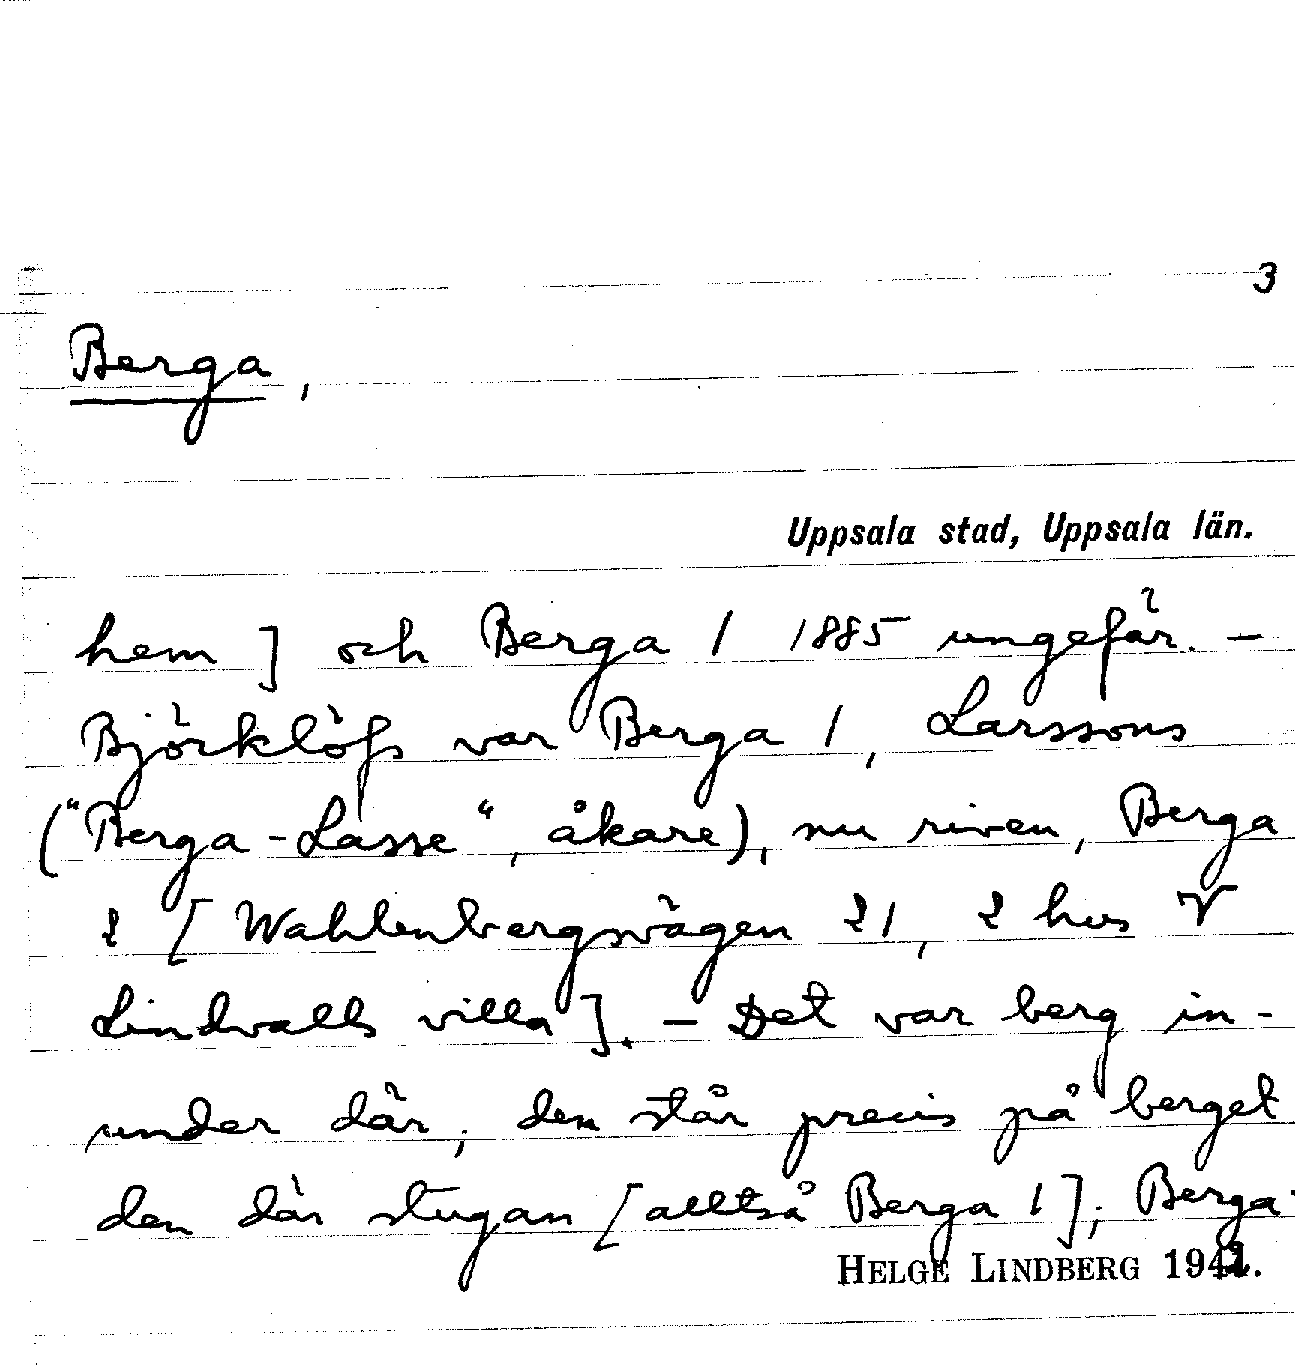 3
Berga,
Uppsala stad, Uppsala län.
hem] och Berga 1 1885 ungefär. –
Björklöfs var Berga 1, Larssons
("Berga-Lasse", åkare), nu riven, Berga
2 [Wahlenbergsvägen 21, 2 hus V
Lindvalls villa]. – Det var berg in-
under där; den står precis på berget
den där stugan [alltså Berga 1]; Berga-
HELGE LINDBERG 1942.